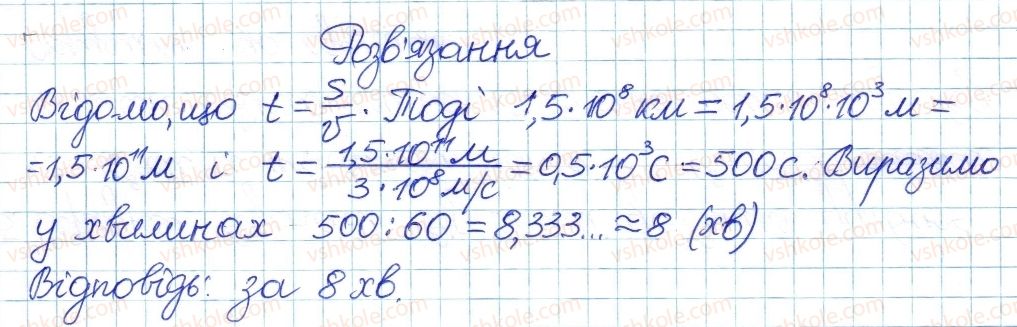 Розв'язання
Відомо, що t = S/v. Тоді 1,5·10⁸ км = 1,5·10⁸·10³ м =
= 1,5·10¹¹ м і t = 1,5·10¹¹ м / 3·10⁸ м/с = 0,5·10³ с = 500 с. Виразимо
у хвилинах 500 : 60 = 8,333... ≈ 8 (хв)
Відповідь: за 8 хв.